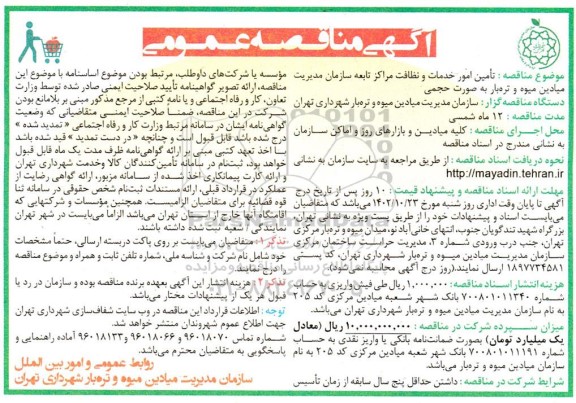 آگهی مناقصه عمومی
موضوع مناقصه : تأمین امور خدمات و نظافت مراکز تابعه سازمان مدیریت
میادین میوه و تره‌بار به صورت حجمی
دستگاه مناقصه گزار: سازمان مدیریت میادین میوه و تره‌بار شهرداری تهران
مدت مناقصه : ۱۲ ماه شمسی
محل اجرای مناقصه : کلیه میادین و بازارهای روز و اماکن سازمان
به نشانی مندرج در اسناد مناقصه
نحوه دریافت اسناد مناقصه : از طریق مراجعه به سایت سازمان به نشانی
http://mayadin.tehran.ir
مهلت ارائه اسناد مناقصه و پیشنهاد قیمت : ۱۰ روز پس از تاریخ درج
آگهی تا پایان وقت اداری روز شنبه مورخ ۱۴۰۲/۱۰/۲۳ می‌باشد که متقاضیان
می‌بایست اسناد و پیشنهادات خود را از طریق پست ویژه به نشانی تهران،
بزرگراه شهید تندگویان جنوب، انتهای خانی آباد نو، میدان میوه و تره‌بار مرکزی
تهران، جنب درب ورودی شماره ۳، مدیریت حراست ساختمان مرکزی
سازمان مدیریت میادین میوه و تره‌بار شهرداری تهران، کد پستی
۱۸۹۷۷۳۴۵۸۱ ارسال نمایند.(روز درج آگهی محاسبه نمی‌شود).
هزینه انتشار اسناد مناقصه: ۱,۰۰۰,۰۰۰ ریال طی فیش واریزی به حساب
شماره ۷۰۰۸۰۱۰۱۱۳۴۰ بانک شهر شعبه میادین مرکزی کد ۲۰۵
به نام سازمان مدیریت میادین میوه و تره‌بار شهرداری تهران، می‌باشد.
میزان سپرده شرکت در مناقصه : ۱۰,۰۰۰,۰۰۰,۰۰۰ ریال (معادل
یک میلیارد تومان) بصورت ضمانت‌نامه بانکی یا واریز نقدی به حساب
شماره ۷۰۰۸۰۱۰۱۱۱۹۱ بانک شهر شعبه میادین مرکزی کد ۲۰۵ به نام
سازمان مدیریت میادین میوه و تره‌بار شهرداری تهران می‌باشد.
شرایط شرکت در مناقصه : داشتن حداقل پنج سال سابقه از زمان تأسیس
مؤسسه یا شرکت‌های داوطلب، مرتبط بودن موضوع اساسنامه با موضوع این
مناقصه، ارائه تصویر گواهینامه تأیید صلاحیت ایمنی صادر شده توسط وزارت
تعاون، کار و رفاه اجتماعی و یا نامه کتبی از مرجع مذکور مبنی بر بلامانع بودن
شرکت در این مناقصه، ضمناً صلاحیت ایمنی متقاضیانی که وضعیت
گواهی‌نامه ایشان در سامانه مرتبط وزارت کار و رفاه اجتماعی « تمدید شده »
درج شده باشد قابل قبول است و چنانچه « در دست تمدید » قید شده باشد
با اخذ تعهد کتبی مبنی بر ارائه گواهی‌نامه ظرف مدت یک ماه قابل قبول
خواهد بود، ثبت‌نام در سامانه تأمین‌کنندگان کالا و خدمت شهرداری تهران
و ارائه کارت پیمانکاری اخذ شده از سامانه مزبور، ارائه گواهی رضایت از
عملکرد در قرارداد قبلی، ارائه مستندات ثبت‌نام شخص حقوقی در سامانه ثنا
قوه قضائیه برای متقاضیان الزامیست. همچنین مؤسسات و شرکتهایی که
اقامتگاه آنها خارج از استان تهران باشد الزاماً می‌بایست در شهر تهران
نمایندگی / شعبه ثبت شده داشته باشند.
تذکر۱: متقاضیان می‌بایست بر روی پاکت دربسته ارسالی، حتماً مشخصات
خود شامل نام شرکت و شناسه ملی، شماره تلفن ثابت و همراه و موضوع مناقصه
را درج نمایند.
تذکر۲: هزینه انتشار این آگهی بعهده برنده مناقصه بوده و سازمان در رد یا
قبول هر یک از پیشنهادات مختار می‌باشد.
توجه : اطلاعات قرارداد این مناقصه در وب سایت شفاف‌سازی شهرداری تهران
جهت اطلاع عموم شهروندان منتشر خواهد شد.
شماره تماس ۹۶۰۱۸۰۷۰ و ۹۶۰۱۸۰۶۶ و ۹۶۰۱۸۱۳۳ آماده راهنمایی و
پاسخگویی به متقاضیان محترم می‌باشد.
روابط عمومی و امور بین الملل
سازمان مدیریت میادین میوه و تره‌بار شهرداری تهران